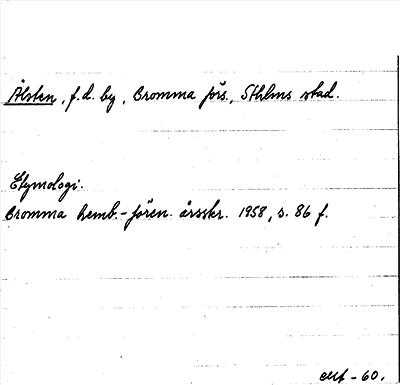 Ålsten, f.d. by, Bromma förs., Sthlms stad.
Etymologi:
Bromma hemb.-fören. årsskr. 1958, s. 86 f.
-60.